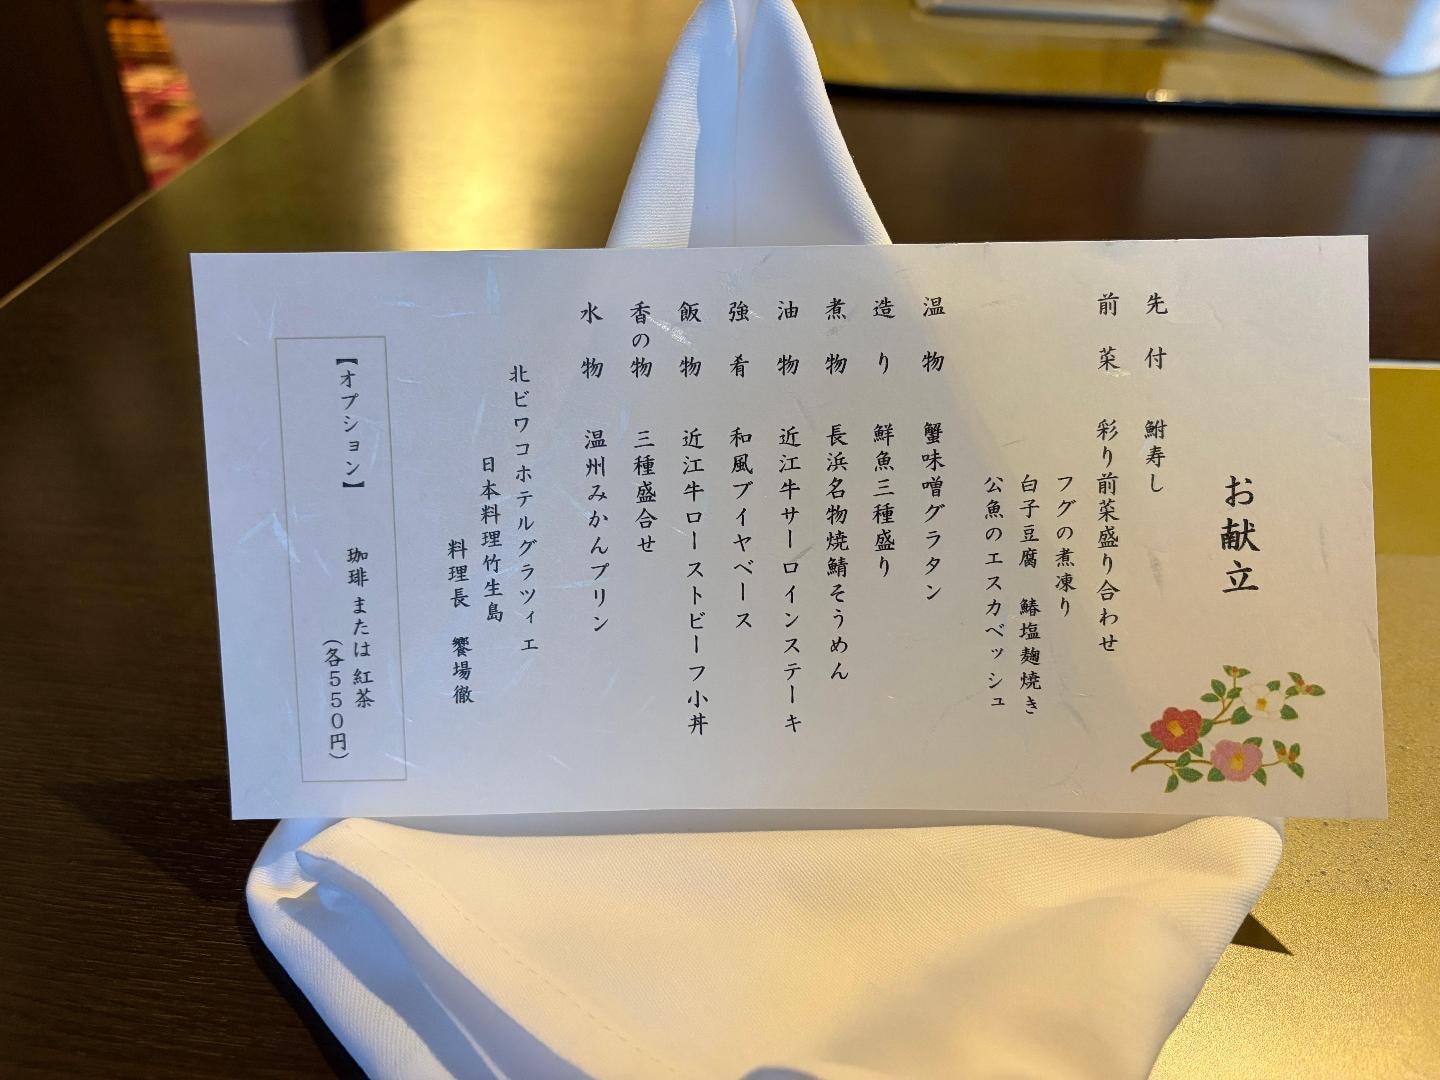 お献立
先付 鮒寿し
前菜 彩り前菜盛り合わせ
フグの煮凍り
白子豆腐 鰆塩麹焼き
公魚のエスカベッシュ
温物 蟹味噌グラタン
造り 鮮魚三種盛り
煮物 長浜名物焼鯖そうめん
油物 近江牛サーロインステーキ
強肴 和風ブイヤベース
飯物 近江牛ローストビーフ小丼
香の物 三種盛合せ
水物 温州みかんプリン
北ビワコホテルグラツィエ
日本料理竹生島
料理長 饗場徹
【オプション】 珈琲 または 紅茶
(各550円)